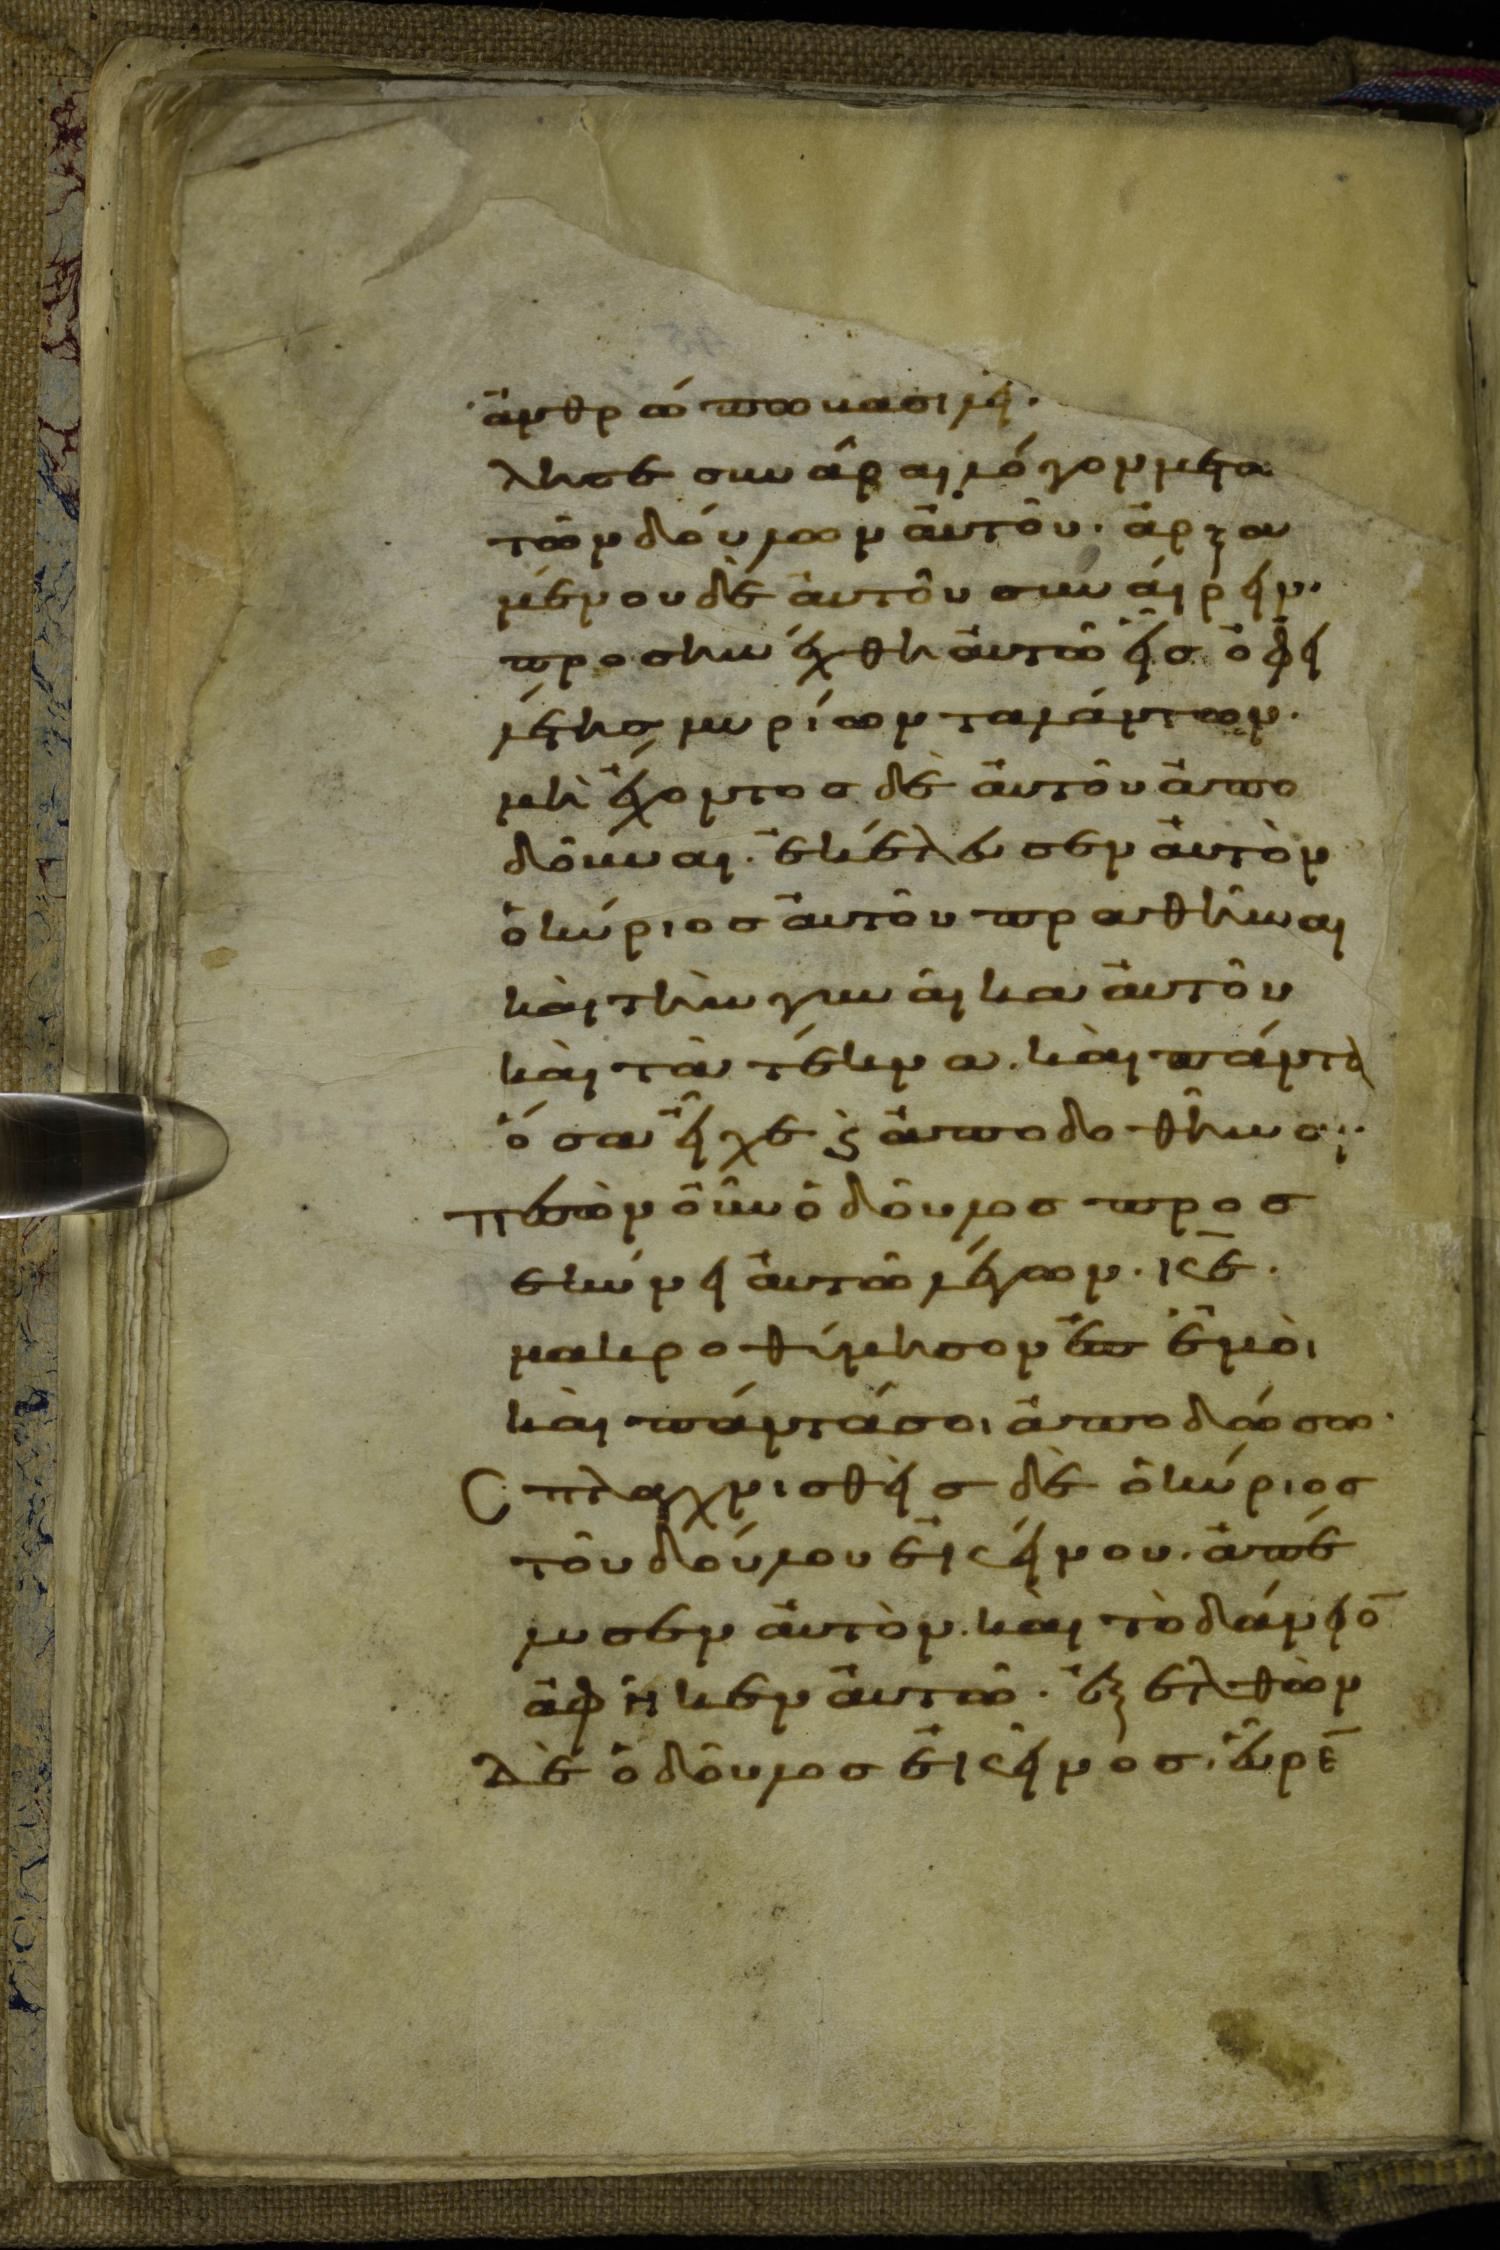 ἀνθρώπω κασιλεῖ.
λησε συνᾶραι λόγον μετα
τῶν δούλων αὐτοῦ. ἀρξα
μένου δὲ αὐτοῦ συναίρειν.
προσηνέχθη αὐτῶ εἷσ ὀφει
λέτησ μυρίων ταλάντων.
μὴ ἔχοντοσ δὲ αὐτοῦ ἀπο
δοῦναι. ἐκέλευσεν αὐτὸν
ὁ κύριοσ αὐτοῦ πραθῆναι
καὶ τὴν γυναῖκα αὐτοῦ
καὶ τὰ τέκνα. καὶ πάντα
ὅσα εἶχε ϗ ἀποδοθῆναι.
πεσὼν οὖν ὁ δοῦλοσ προσ
εκύνει αὐτῶ λέγων. κε.
μακροθύμησον ἐπ ἐμοὶ
καὶ πάντά σοι ἀποδώσω.
Σπλαχνισθεὶσ δὲ ὁ κύριοσ
τοῦ δούλου ἐκείνου. ἀπέ
λυσεν αὐτὸν. καὶ τὸ δάνειο̅
ἀφῆκεν αὐτῶ. ἐξελθὼν
δὲ ὁ δοῦλοσ ἐκεῖνοσ. εὗρε̅